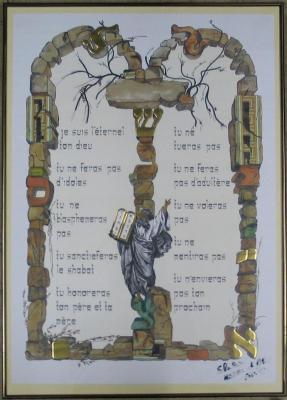 je suis l'éternel
ton dieu
tu ne feras pas
d'idoles
tu ne
blasphemeras
pas
tu sanctifieras
le shabat
tu honoreras
ton père et ta
mère
tu ne
tueras pas
tu ne feras
pas d'adultère
tu ne voleras
pas
tu ne
mentiras pas
tu n'envieras
pas ton
prochain
ש
א